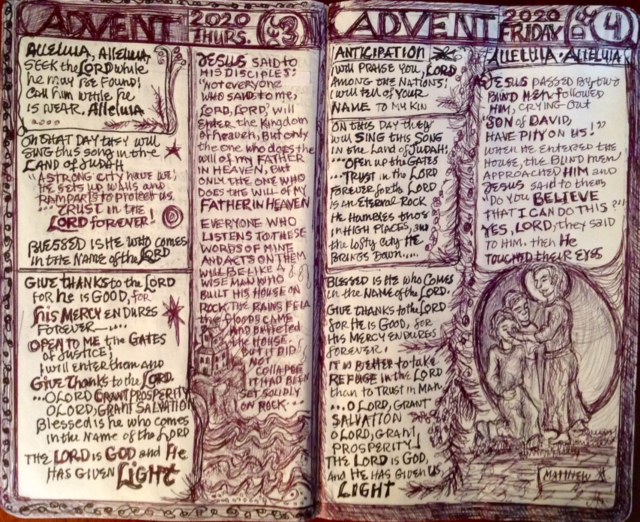 ADVENT
2020
THURS.
3
Alleluia, Alleluia,
SEEK the LORD while
he may be Found!
Call Him while he
is NEAR. Alleluia
ON that DAY they will
SING this SONG in the
LAND of JUDAH
"A STRONG CITY have WE;
He SETS up WALLS and
RAMPARTS to PROTECT us.
... TRUST in the
LORD FOREVER!
BLESSED IS He WHO COMES
in the NAME of the LORD
GIVE THANKS to the LORD
FOR he is GOOD, for
his MERCY ENDURES
FOREVER ---...
OPEN to ME the GATES
of JUSTICE;
I will ENTER them AND
GIVE THANKS to the LORD.
... O LORD GRANT PROSPERITY
O LORD, GRANT SALVATION
BLESSED is he who comes
in the NAME of the LORD
THE LORD is GOD and He
HAS GIVEN LIGHT
JESUS SAID to
HIS DISCIPLES:
"Not everyone
WHO SAID to me,
'LORD, LORD,' will
ENTER the KINGDOM
of heaven, But only
the one who does the
will of my FATHER
IN HEAVEN, BUT
ONLY the ONE WHO
DOES the WILL of MY
FATHER IN HEAVEN
EVERYONE WHO
LISTENS to THESE
WORDS OF MINE
AND ACTS ON them
WILL BE LIKE A
WISE MAN WHO
BUILT HIS HOUSE ON
ROCK. THE RAINS FELL
the FLOODS CAME
AND BUFFETED
the HOUSE.
BUT it DID
NOT
COLLAPSE
it HAD BEEN
SET SOLIDLY
ON ROCK...
ADVENT
2020
FRIDAY
DEC
4
ANTICIPATION
I will PRAISE YOU, LORD
AMONG the NATIONS;
I will tell of YOUR
NAME to MY KIN
ON this DAY they
will SING this SONG
in the LAND of JUDAH;
... OPEN up the GATES
... TRUST in the LORD
FOREVER for the LORD
is AN ETERNAL ROCK
He HUMBLES those
in HIGH PLACES, AND
the LOFTY CITY He
BRINGS DOWN....
BLESSED is He who COMES
in the NAME of the LORD.
GIVE THANKS to the LORD
for He is GOOD, for
HIS MERCY ENDURES
FOREVER!
It is BETTER to take
REFUGE in the LORD
than to TRUST in MAN
... O LORD, GRANT
SALVATION
O LORD, GRANT
PROSPERITY!
THE LORD is GOD,
AND He HAS GIVEN US
LIGHT
ALLELUIA · ALLELUIA
JESUS PASSED BY. two
BLIND MEN FOLLOWED
HIM, CRYING OUT
"SON of DAVID,
HAVE PITY ON US!"
WHEN He ENTERED the
HOUSE, the BLIND MEN
APPROACHED HIM AND
JESUS SAID to them
"Do YOU BELIEVE
THAT I CAN DO THIS?"
YES, LORD, they SAID
to HIM. then He
TOUCHED their EYES
MATTHEW